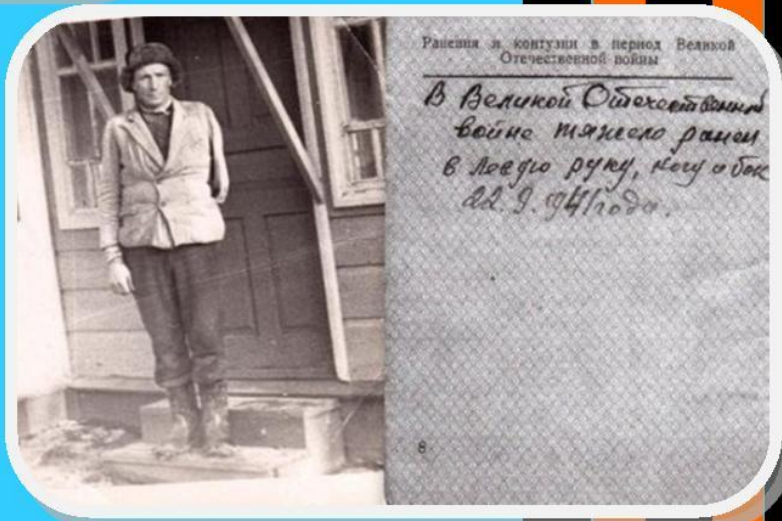 Ранения и контузии в период Великой
Отечественной войны
В Великой Отечественной
войне тяжело ранен
в левую руку, ногу и бок
22. 9. 941 года.
8